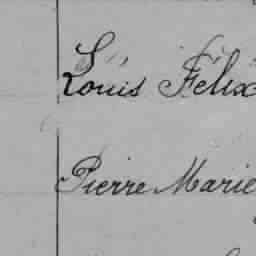 Louis Félix
Pierre Marie